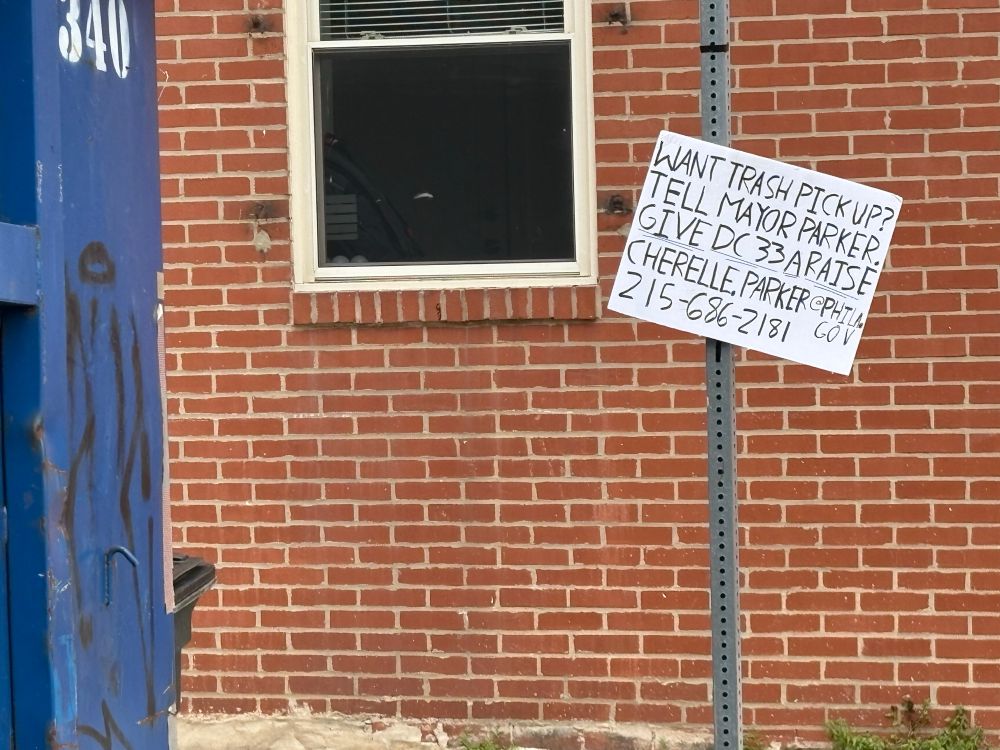 340
WANT TRASH PICK UP?
TELL MAYOR PARKER.
GIVE DC 33 A RAISE
CHERELLE.PARKER@PHILA.
GOV
215-686-2181